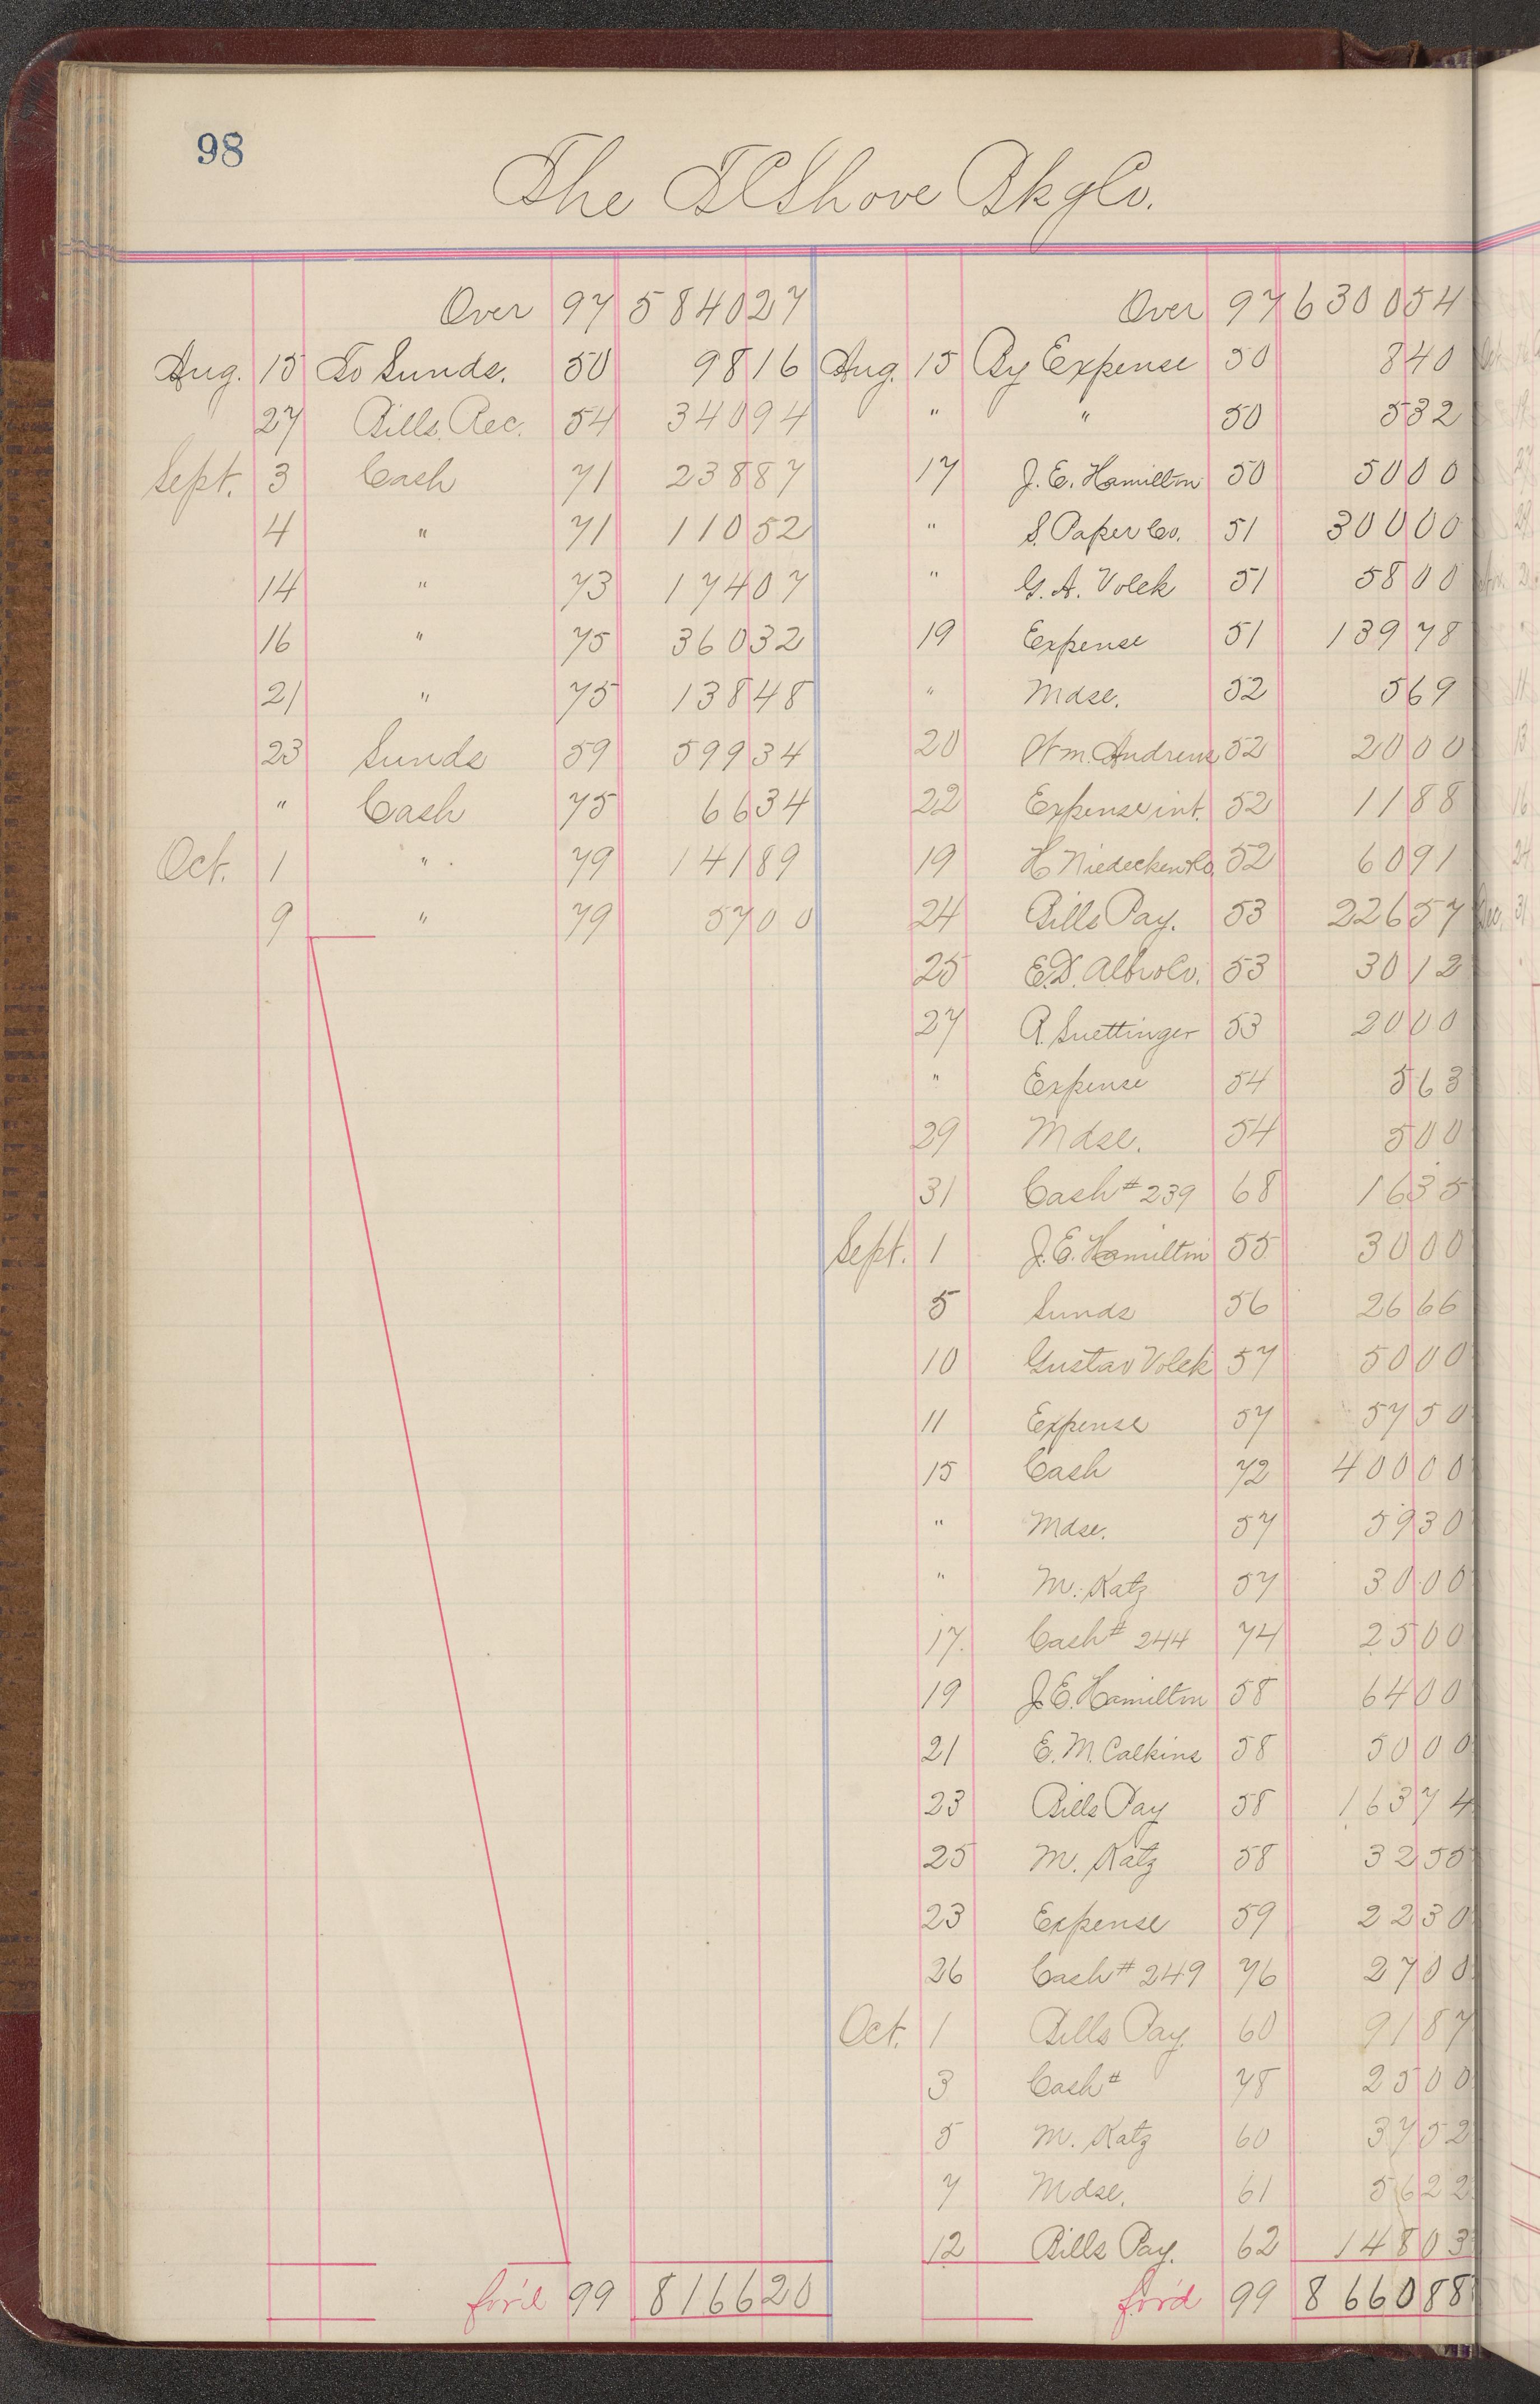 98
The T C Shove Bkg Co.
Over 97 5840 27
Aug. 15 To Sunds. 50 98 16
27 Bills Rec. 54 340 94
Sept. 3 Cash 71 238 87
4 " 71 110 52
14 " 73 174 07
16 " 75 360 32
21 " 75 138 48
23 Sunds 59 599 34
" Cash 75 66 34
Oct. 1 " 79 141 89
9 " 79 57 00
for'd 99 8166 20
Over 97 6300 54
Aug. 15 By Expense 50 8 40
" " 50 5 32
17 J. E. Hamilton 50 50 00
" S. Paper Co. 51 300 00
" G. A. Volek 51 58 00
19 Expense 51 139 78
" Mdse. 52 5 69
20 Wm. Andrews 52 20 00
22 Expense int. 52 11 88
19 H Niedecken Co. 52 60 91
24 Bills Pay. 53 226 57
25 E.D. Albro Co. 53 30 12
27 R. Suettinger 53 20 00
" Expense 54 5 63
29 Mdse. 54 5 00
31 Cash # 239 68 16 35
Sept. 1 J. E. Hamilton 55 30 00
5 Sunds 56 26 66
10 Gustav Volek 57 50 00
11 Expense 57 57 50
15 Cash 72 400 00
" Mdse. 57 59 30
" M. Katz 57 30 00
17. Cash # 244 74 25 00
19 J. E. Hamilton 58 64 00
21 E. M. Calkins 58 50 00
23 Bills Pay 58 163 74
25 M. Katz 58 32 50
23 Expense 59 22 30
26 Cash # 249 76 27 00
Oct. 1 Bills Pay. 60 91 87
3 Cash # 78 25 00
5 M. Katz 60 37 52
7 Mdse. 61 56 22
12 Bills Pay. 62 148 03
for'd 99 8660 88